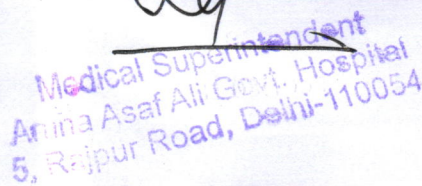 Medical Superintendent
Aruna Asaf Ali Govt. Hospital
5, Rajpur Road, Delhi-110054